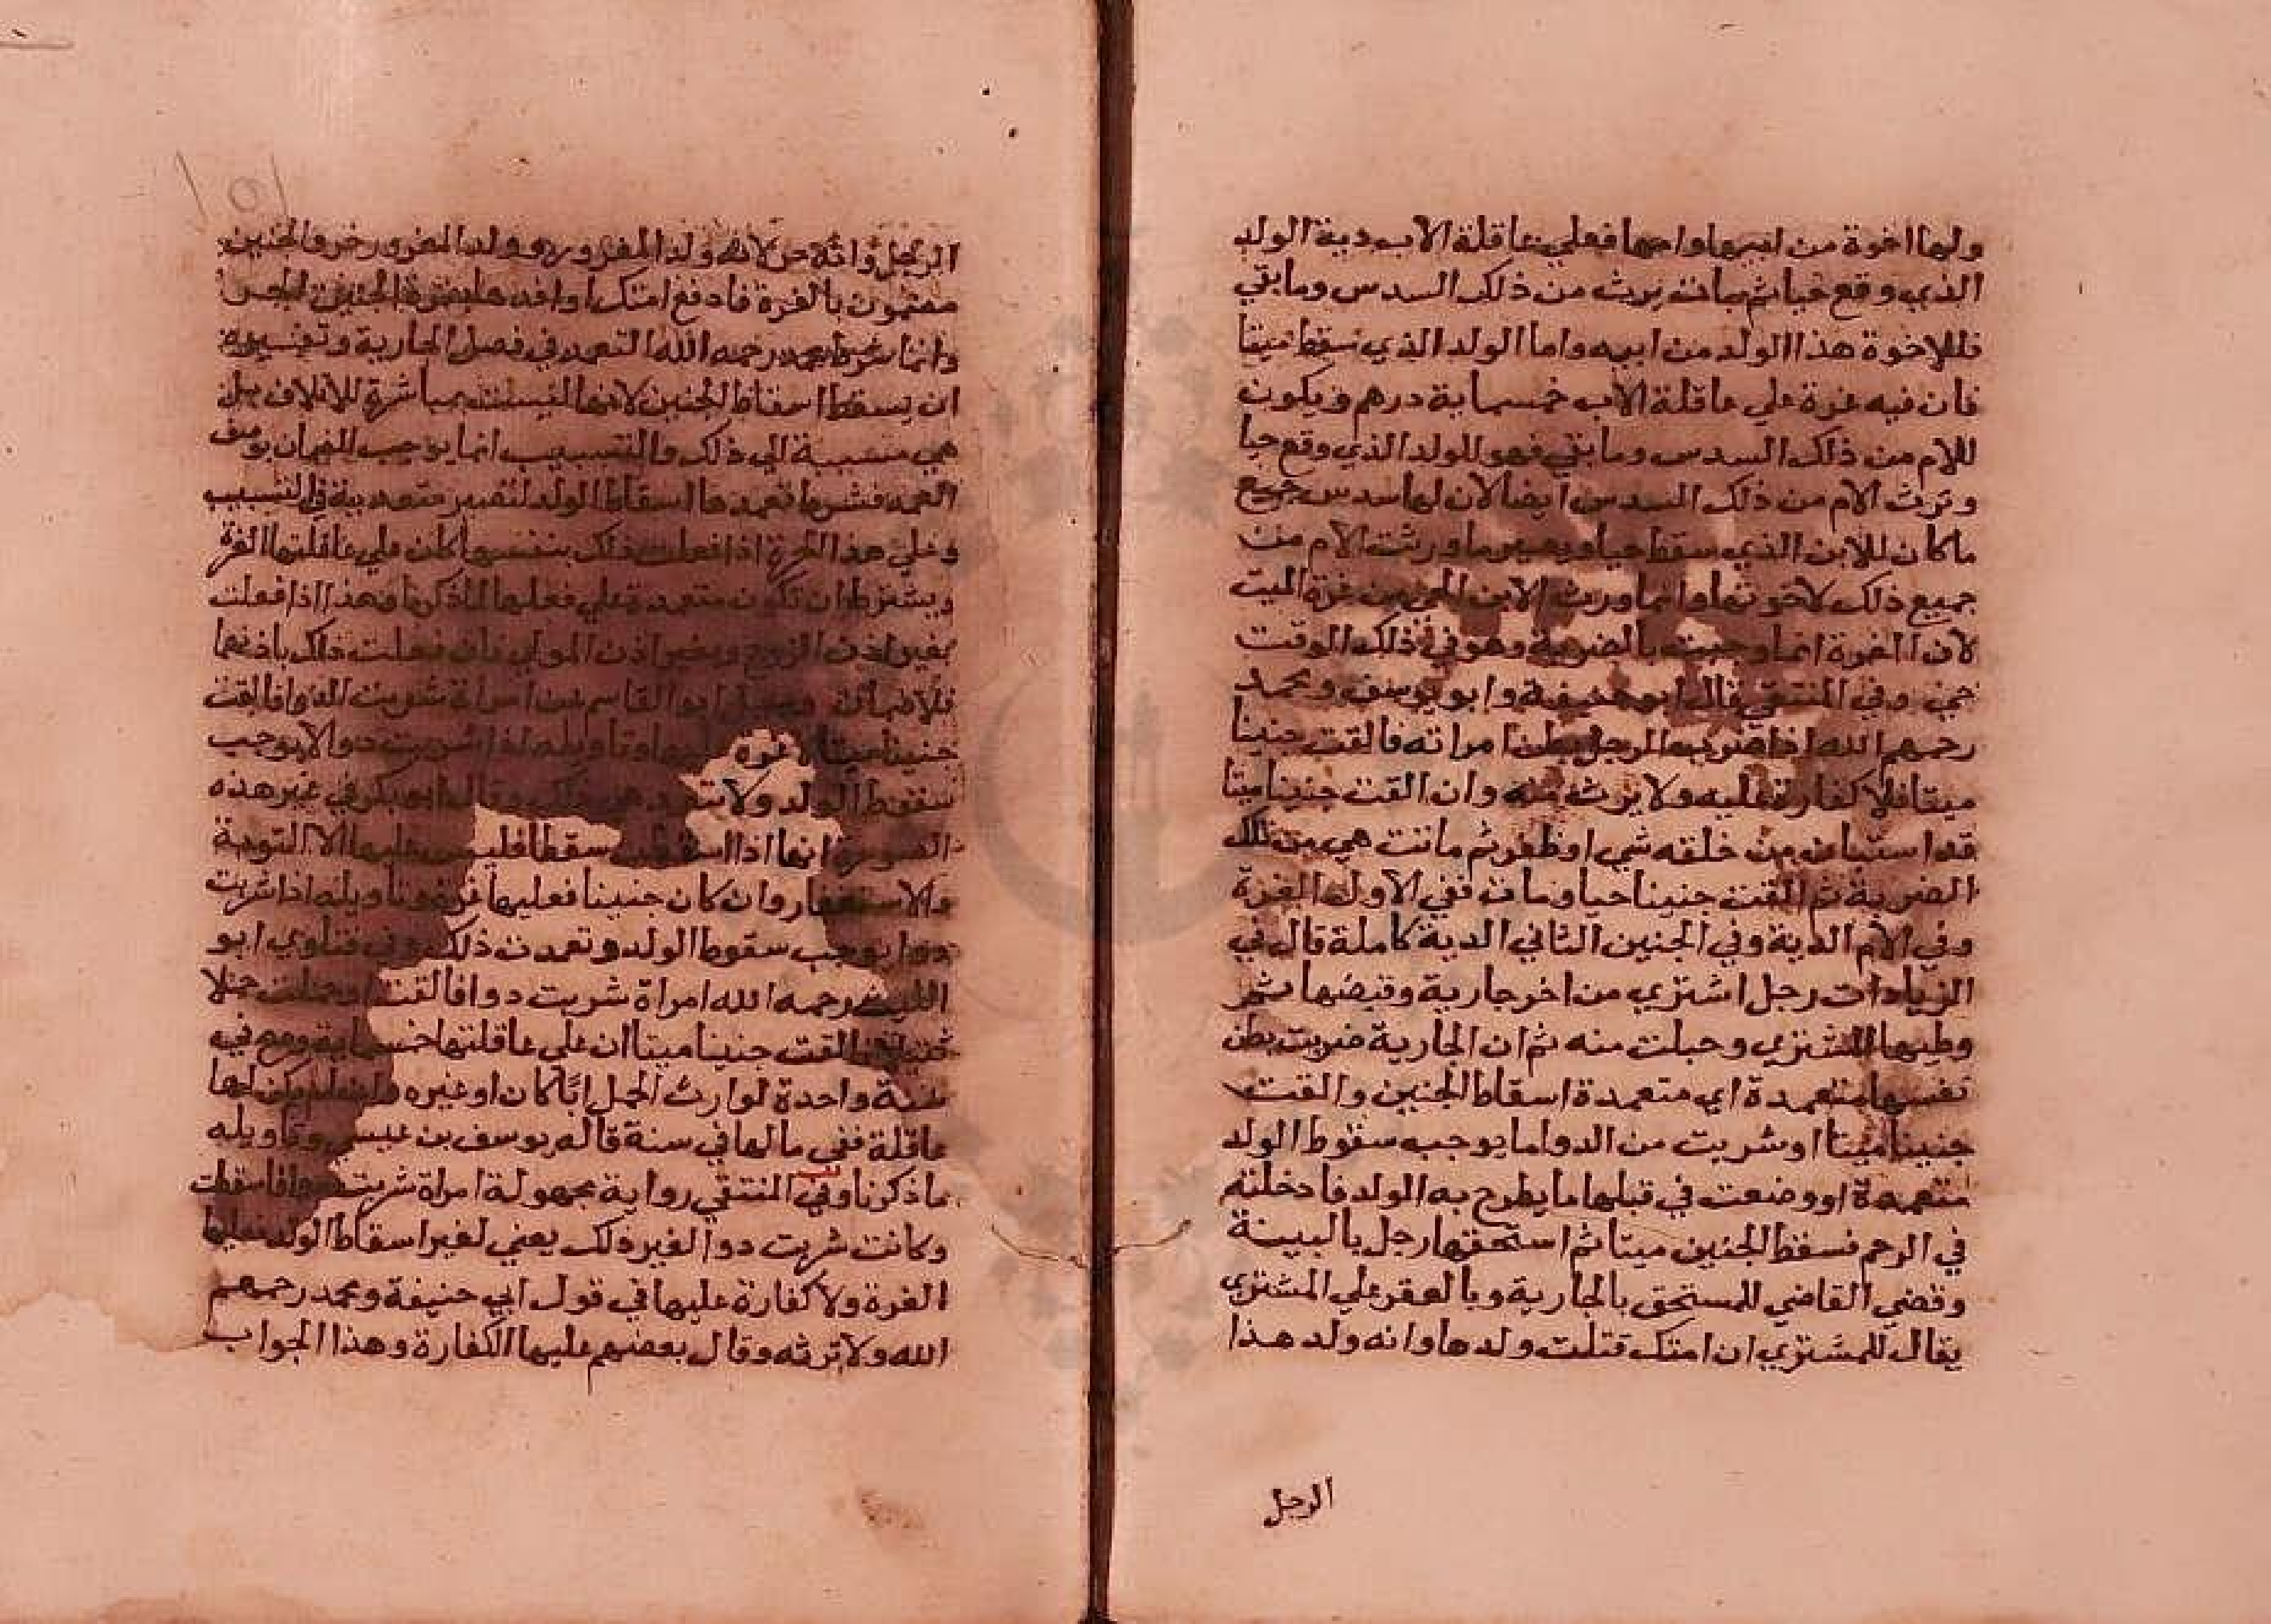 ولها اخوة من ابيها وامها فعلي عاقلة الاب دية الولد
الذي وقع حيا ثم مات يرث من ذلك السدس وما بقي
فللاخوة هذا الولد من ابيه واما الولد الذي سقط ميتا
فان فيه غرة علي عاقلة الاب خمسماية درهم ويكون
للام من ذلك السدس وما بقي فهو للولد الذي وقع حيا
وترث الام من ذلك السدس ايضا لان لها سدس جميع
ما كان للابن الذي سقط حيا ويصير ما ورثت الام من
جميع ذلك لاخوتها وانما ورث الابن الحي من غرة الميت
لان الغرة انما وجبت بالضربة وهو في ذلك الوقت
حي وفي المنتقي قال ابو حنيفة وابو يوسف ومحمد
رحمهم الله اذا ضرب الرجل بطن امراته فالقت جنينا
ميتا فلا كفارة عليه ولا يرث منه وان القت جنينا ميتا
قد استبان من خلقه شي او ظفر ثم ماتت هي من تلك
الضربة ثم القت جنينا حيا ومات ففي الاول الغرة
وفي الام الدية وفي الجنين الثاني الدية كاملة قال في
الزيادات رجل اشتري من اخر جارية وقبضها ثم
وطيها المشتري وحبلت منه ثم ان الجارية ضربت بطن
نفسها متعمدة اي متعمدة اسقاط الجنين والقت
جنينا ميتا او شربت من الدوا ما يوجب سقوط الولد
متعمدة او وضعت في قبلها ما يطرح به الولد فادخلته
في الرحم فسقط الجنين ميتا ثم استحقها رجل بالبينة
وقضي القاضي للمستحق بالجارية وبالعقر علي المشتري
يقال للمشتري ان امتك قتلت ولدها وانه ولد هذا
الرجل
الرجل وانه حر لانه ولد المغرور وولد المغرور حر والجنين
مضمون بالغرة فادفع امتك او افدها بغرة الجنين الحر
وانما شرط محمد رحمه الله التعمد في فصل الجارية وتفسيره
ان يسقط اسقاط الجنين لانها ليست بمباشرة للاتلاف بل
هي متسببة الي ذلك والتسبيب انما يوجب الضمان بوصف
العمد فشرط تعمدها اسقاط الولد لتصير متعدية في التسبيب
وعلي هذا الحرة اذا فعلت ذلك بنفسها كان علي عاقلتها الغرة
ويشترط ان تكون متعمدة علي فعلها لما ذكرنا وهذا اذا فعلت
بغير اذن الزوج وبغير اذن المولي فان فعلت ذلك باذنهما
فلا ضمان وسيل ابو القاسم عن امراة شربت الدوا فالقت
جنينا ميتا لا غرة عليها وتاويله اذا شربت دوا لا يوجب
سقوط الولد ولا تتعمد هي ذلك وقال ابو بكر في غير هذه
الصورة انها اذا اسقطت سقطا فليس عليها الا التوبة
والاستغفار وان كان جنينا فعليها غرة وتاويله اذا شربت
دوا يوجب سقوط الولد وتعمدت ذلك وفي فتاوي ابو
الليث رحمه الله امراة شربت دوا فالقت او حملت حملا
ثقيلا فالقت جنينا ميتا ان علي عاقلتها خمسماية درهم في
سنة واحدة لوارث الحمل ابًا كان او غيره وان لم يكن لها
عاقلة ففي مالها في سنة قاله يوسف بن عيسي وتاويله
ما ذكرنا وفي المنتقي رواية مجهولة امراة شربت دوا فاسقطت
وكانت شربت دوا لغير ذلك يعني لغير اسقاط الولد فعليها
الغرة ولا كفارة عليها في قول ابي حنيفة ومحمد رحمهم
الله ولا ترثه وقال بعضهم عليها الكفارة وهذا الجواب